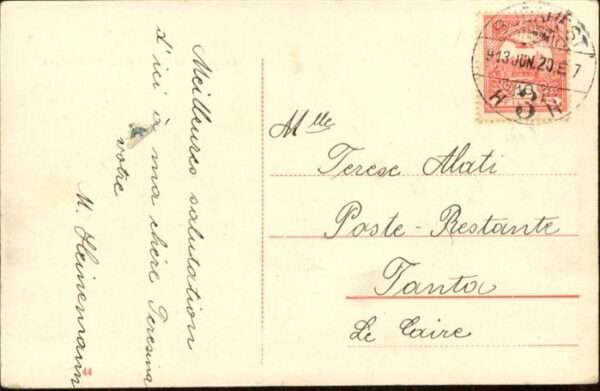 Meilleures salutation
d'ici à ma chère Teresina
votre
M. Heinemann
BUDAPEST
913 JUN. 20. E 7
H 3 H
Mlle
Terese Alati
Poste-Restante
Tanta
Le Caire
44